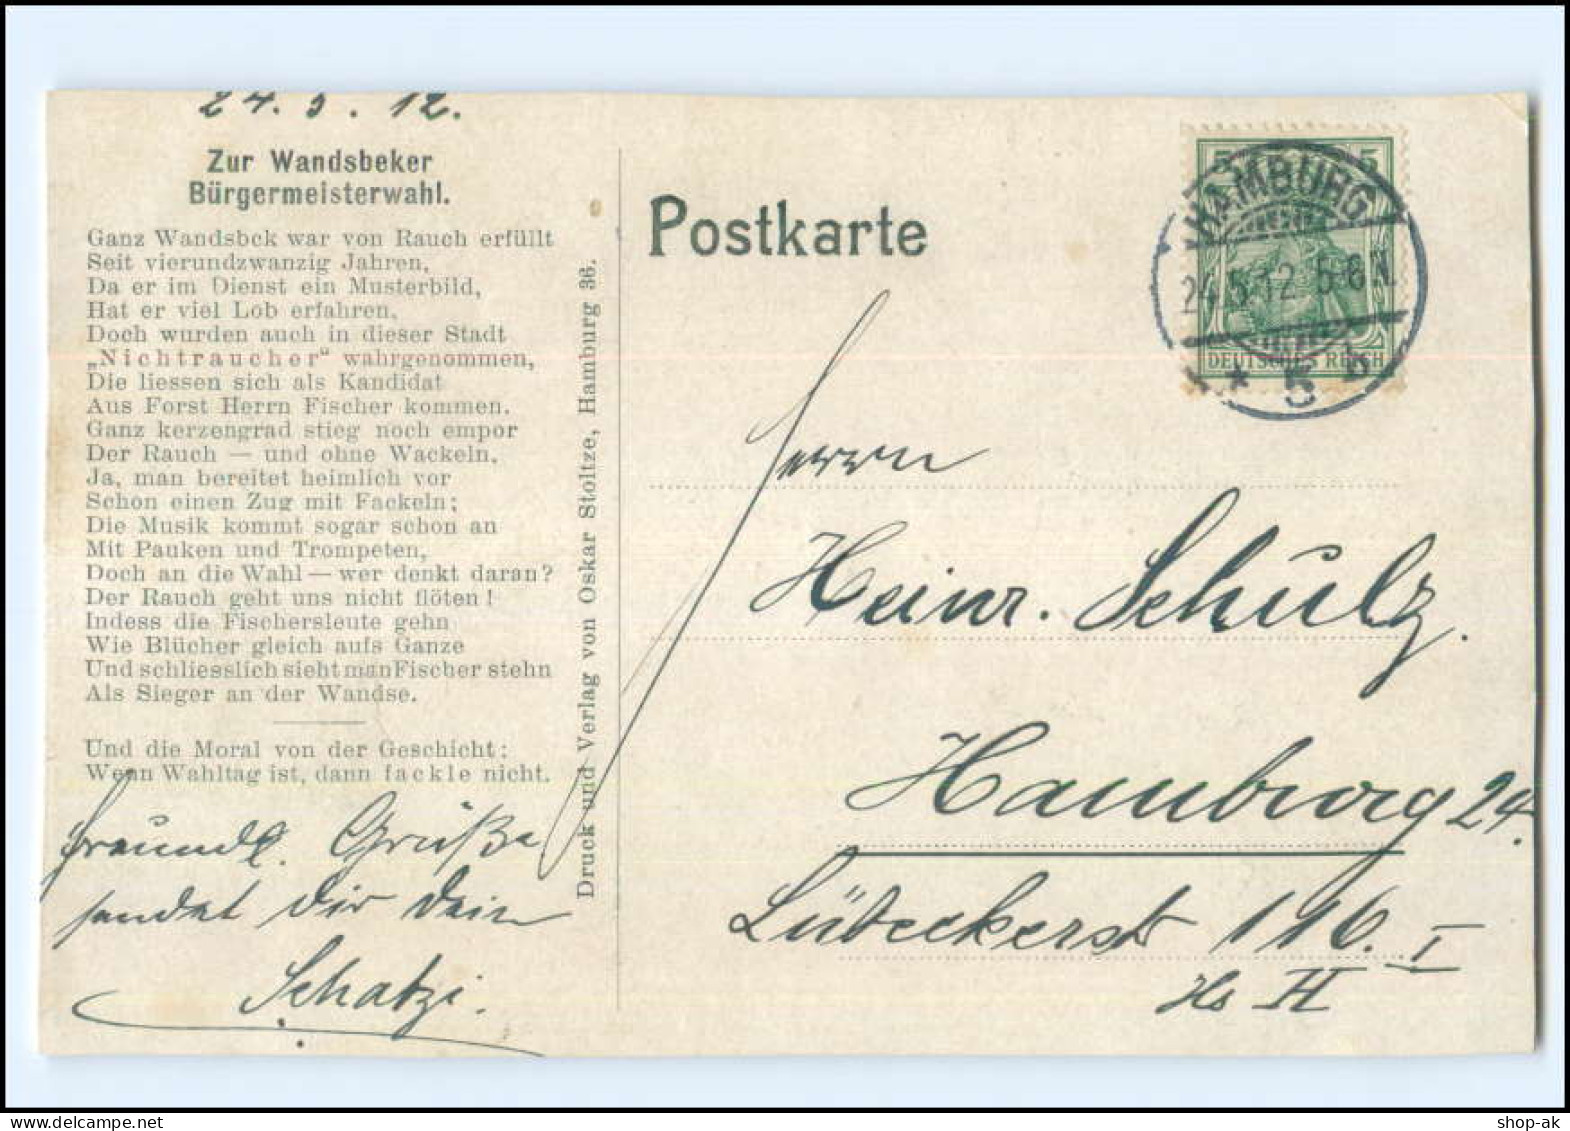 24. 5. 12.
Zur Wandsbeker
Bürgermeisterwahl.
Ganz Wandsbck war von Rauch erfüllt
Seit vierundzwanzig Jahren,
Da er im Dienst ein Musterbild,
Hat er viel Lob erfahren,
Doch wurden auch in dieser Stadt
„Nichtraucher“ wahrgenommen,
Die liessen sich als Kandidat
Aus Forst Herrn Fischer kommen.
Ganz kerzengrad stieg noch empor
Der Rauch — und ohne Wackeln,
Ja, man bereitet heimlich vor
Schon einen Zug mit Fackeln;
Die Musik kommt sogar schon an
Mit Pauken und Trompeten,
Doch an die Wahl — wer denkt daran?
Der Rauch geht uns nicht flöten!
Indess die Fischersleute gehn
Wie Blücher gleich aufs Ganze
Und schliesslich sieht man Fischer stehn
Als Sieger an der Wandse.
Und die Moral von der Geschicht:
Wenn Wahltag ist, dann fackle nicht.
Freundl. Grüße
sendet Dir Dein
Schatzi.
Druck und Verlag von Oskar Stoltze, Hamburg 36.
Postkarte
5 5
HAMBURG
24.5.12. 5-6 N.
* 5 b
DEUTSCHES REICH
Herrn
Heinr. Schulz.
Hamburg 24.
Lübeckerst 116. I
Hs II
shop-ak